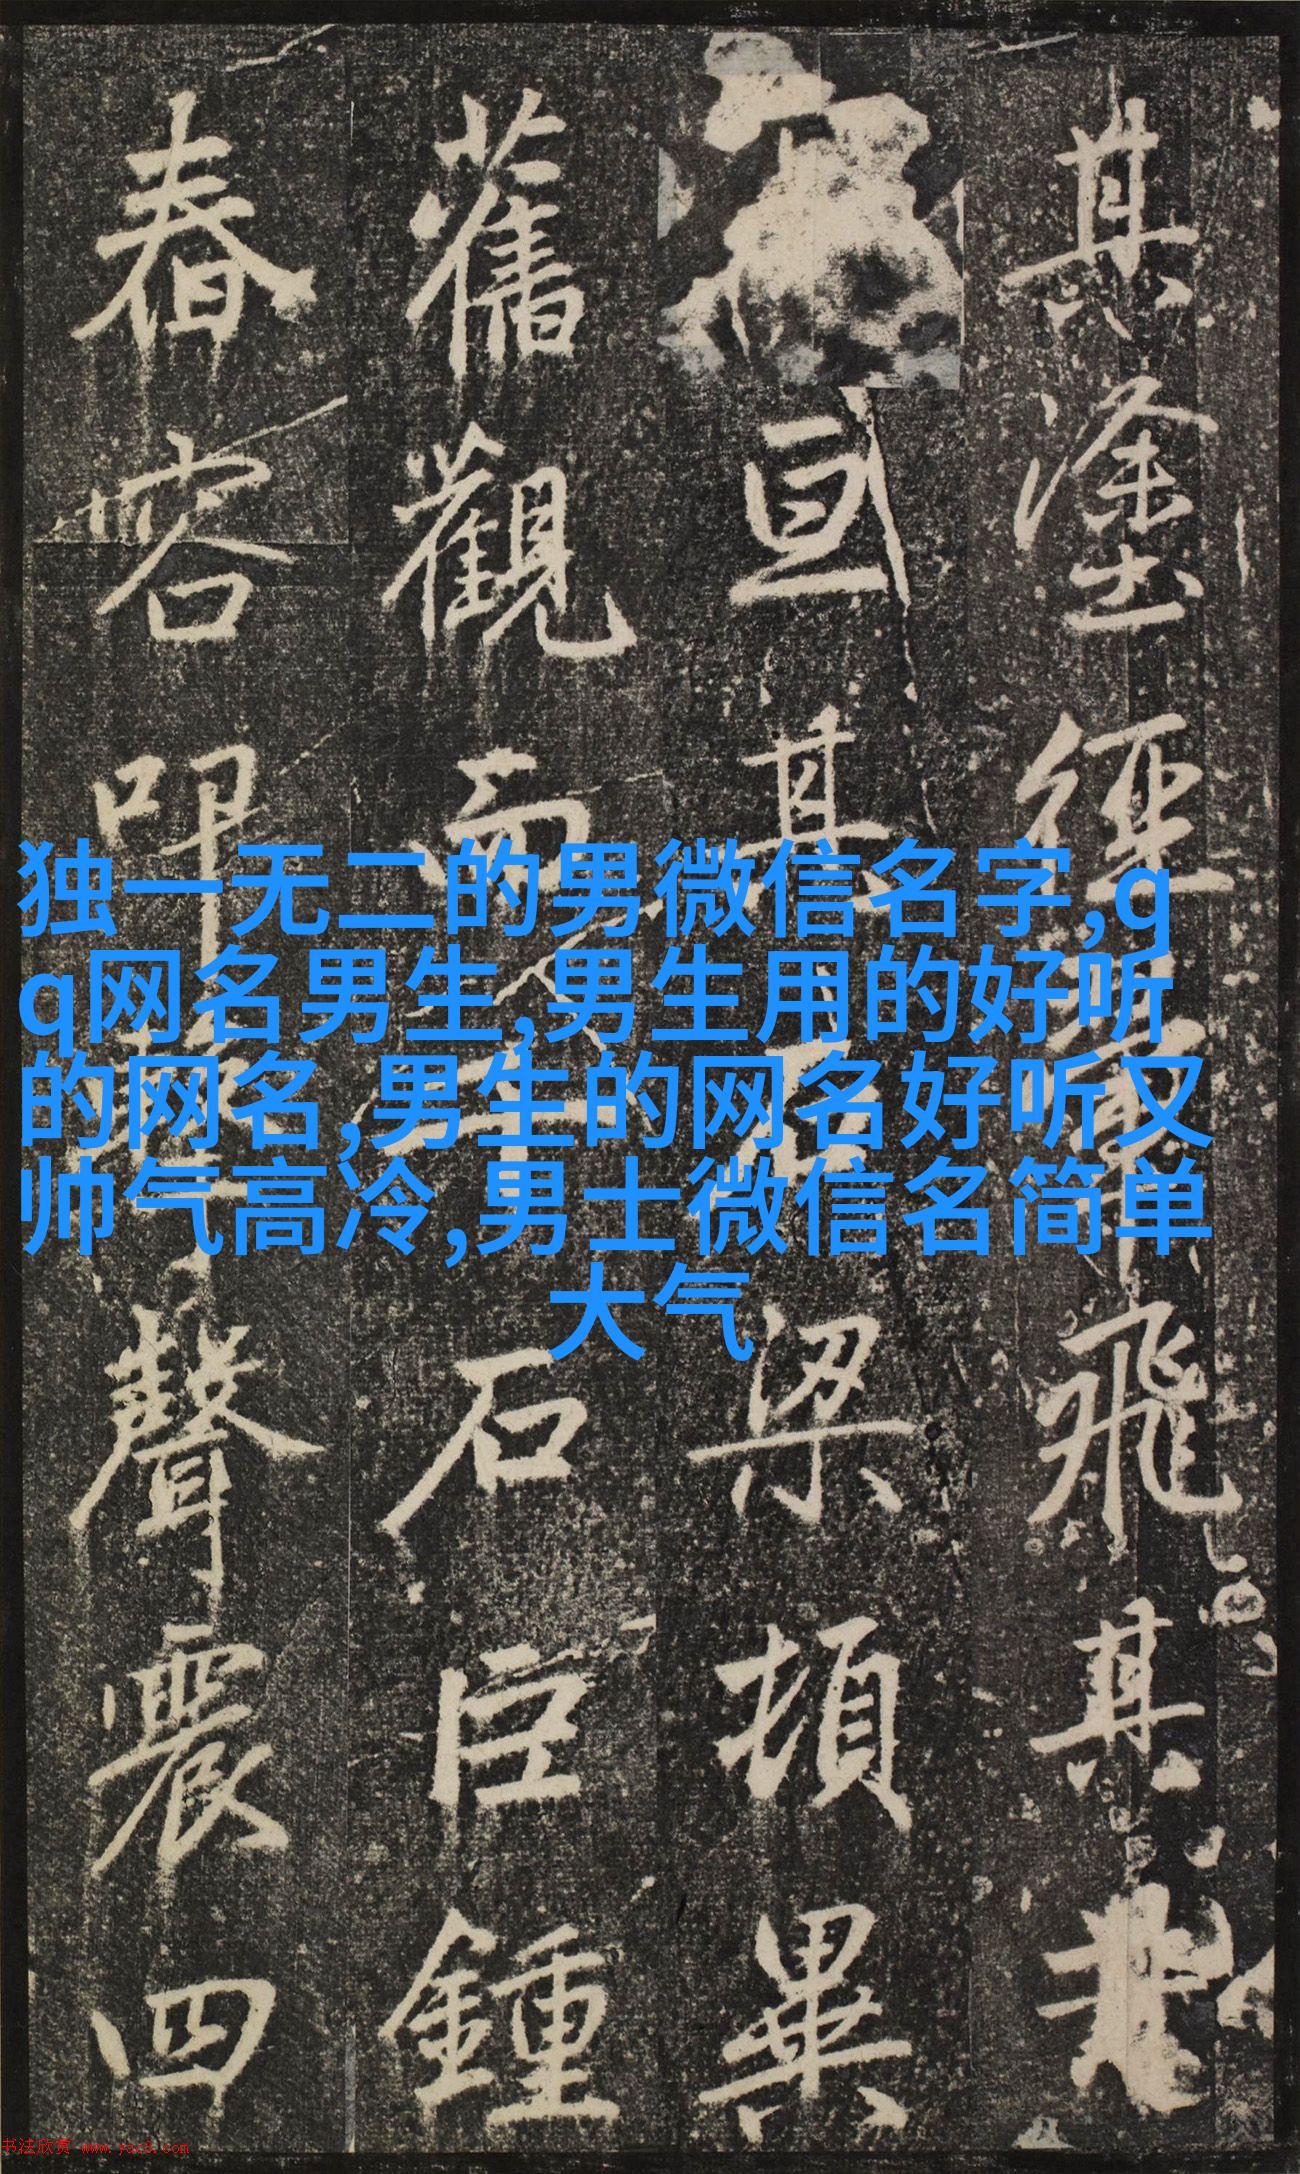 其塗經飛其
亘其梁頓畢
舊觀而石巨鍾
春容叩聲震四
独一无二的男微信名字,q
q网名男生,男生用的好听
的网名,男生的网名好听又
帅气高冷,男士微信名简单
大气
书法欣赏 www.yac8.com